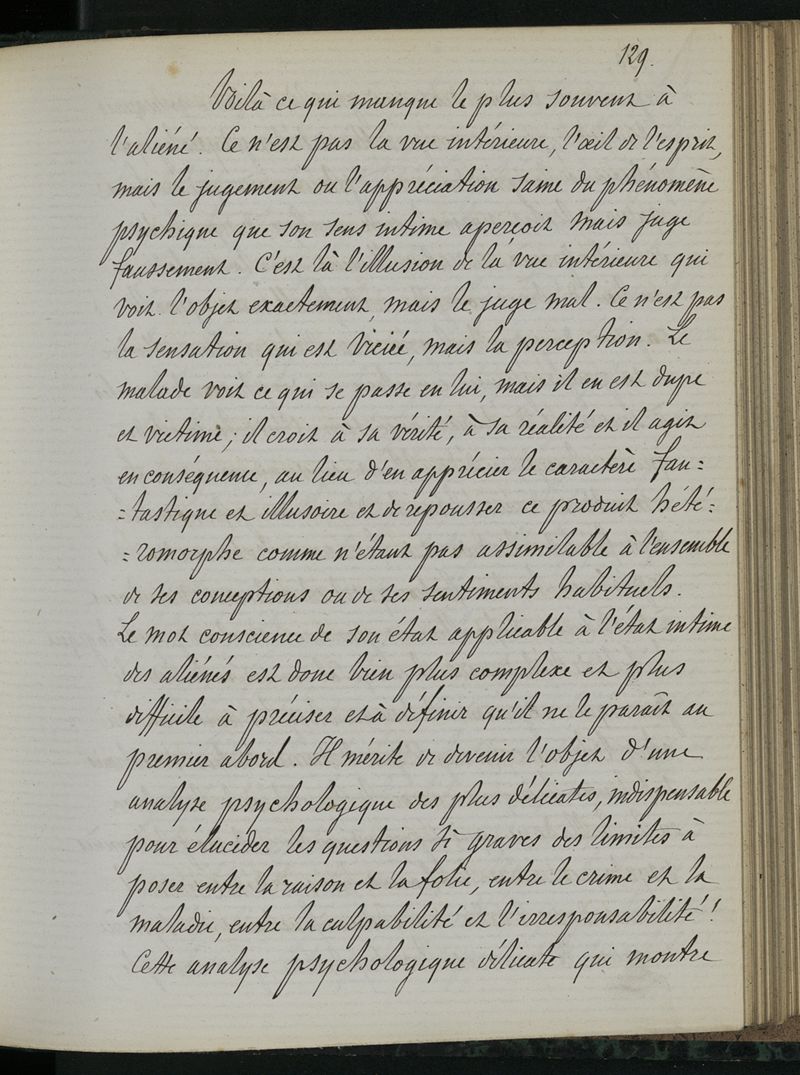 129.
Voilà ce qui manque le plus souvent à
l'aliéné. Ce n'est pas la vue intérieure, l'œil de l'esprit,
mais le jugement ou l'appréciation saine du phénomène
psychique que son sens intime aperçoit mais juge
faussement. C'est là l'illusion de la vue intérieure qui
voit l'objet exactement, mais le juge mal. Ce n'est pas
la sensation qui est viciée, mais la perception. Le
malade voit ce qui se passe en lui, mais il en est dupe
et victime ; il croit à sa vérité, à sa réalité et il agit
en conséquence, au lieu d'en apprécier le caractère fan=
=tastique et illusoire et de repousser ce produit hété=
=romorphe comme n'étant pas assimilable à l'ensemble
de ses conceptions ou de ses sentiments habituels.
Le mot conscience de son état applicable à l'état intime
des aliénés est donc bien plus complexe et plus
difficile à préciser et à définir qu'il ne le paraît au
premier abord. Il mérite de devenir l'objet d'une
analyse psychologique des plus délicates, indispensable
pour élucider les questions si graves des limites à
poser entre la raison et la folie, entre le crime et la
maladie, entre la culpabilité et l'irresponsabilité !
Cette analyse psychologique délicate qui montre